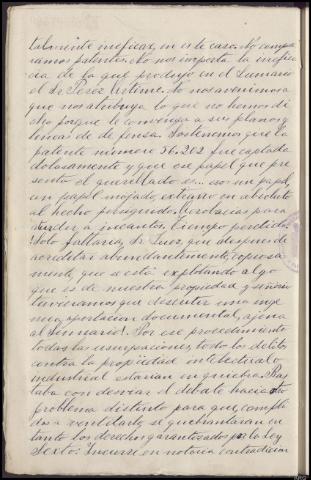 talmente ineficaz, en este caso. No compa-
ramos patentes. No nos importa la inefica-
cia de la que produjo en el sumario
el Sr. Perez Artime. No nos avenimos a
que nos atribuya lo que no hemos di-
cho porque le convenga a sus planes y
líneas de defensa. Sostenemos que la
patente número 56.262 fue captada
dolosamente y que ese papel que pre-
senta el querellado es... eso un papel,
un papel mojado, extraño en absoluto
al hecho perseguido. para
aturdir a incautos, tiempo perdido.
Solo faltaría, Sr. Juez, que despues de
acreditar abundantemente, copiosa-
mente, que se está explotando algo
que es de nuestra propiedad y señorío
tuvieramos que discutir una
aportacion documental, ajena
al sumario. Por ese procedimiento
todas las usurpaciones, todos los delitos
contra la propiedad intelectual o
industrial estarían en quiebra. Bas-
taba con desviar el debate hacia otro
problema distinto para que, compli-
dos a ventilarlo, se quebrantaran en
tanto los derechos garantizados por la Ley
Sexto: Incurre en notoria contradiccion